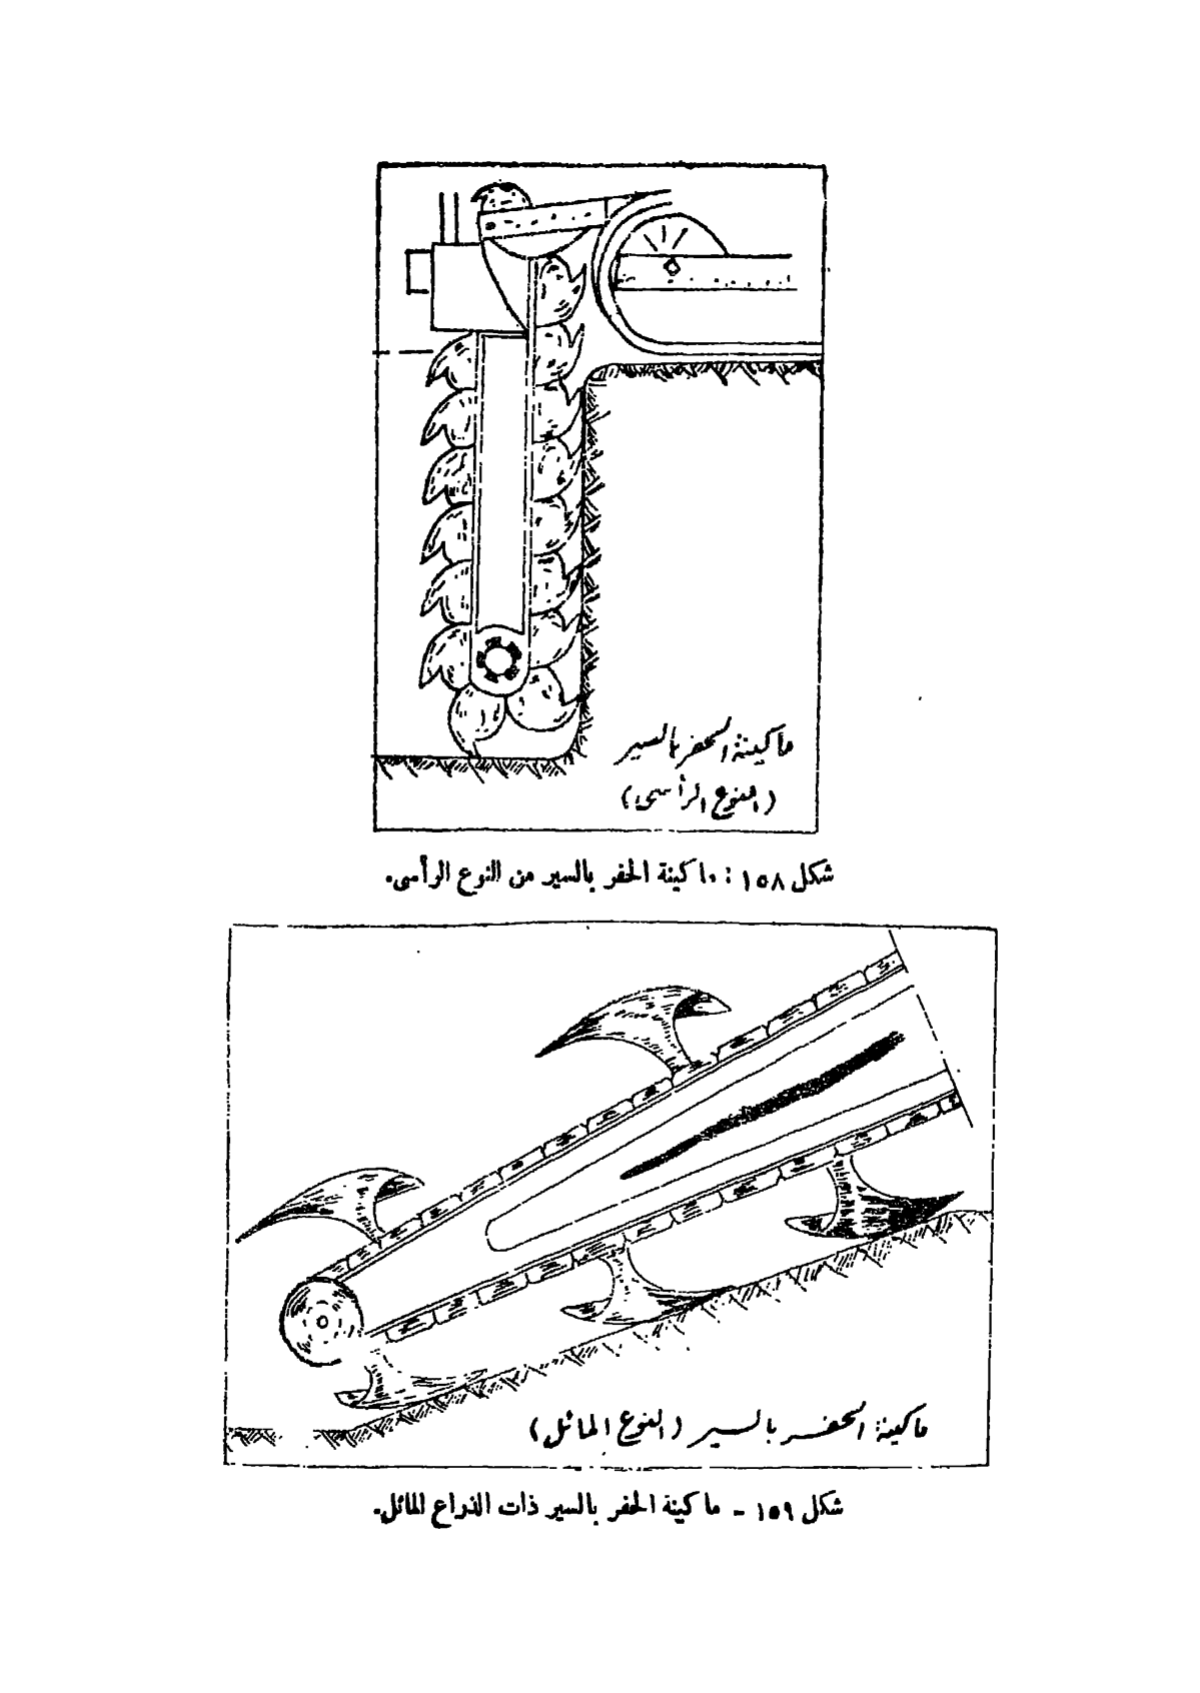 ماكينة الحفر بالسير
(النوع الرأسى)
شكل ١٥٨ : ماكينة الحفر بالسير من النوع الرأسى.
ماكينة الحفر بالسير (النوع المائل)
شكل ١٥٩ - ماكينة الحفر بالسير ذات الذراع المائل.